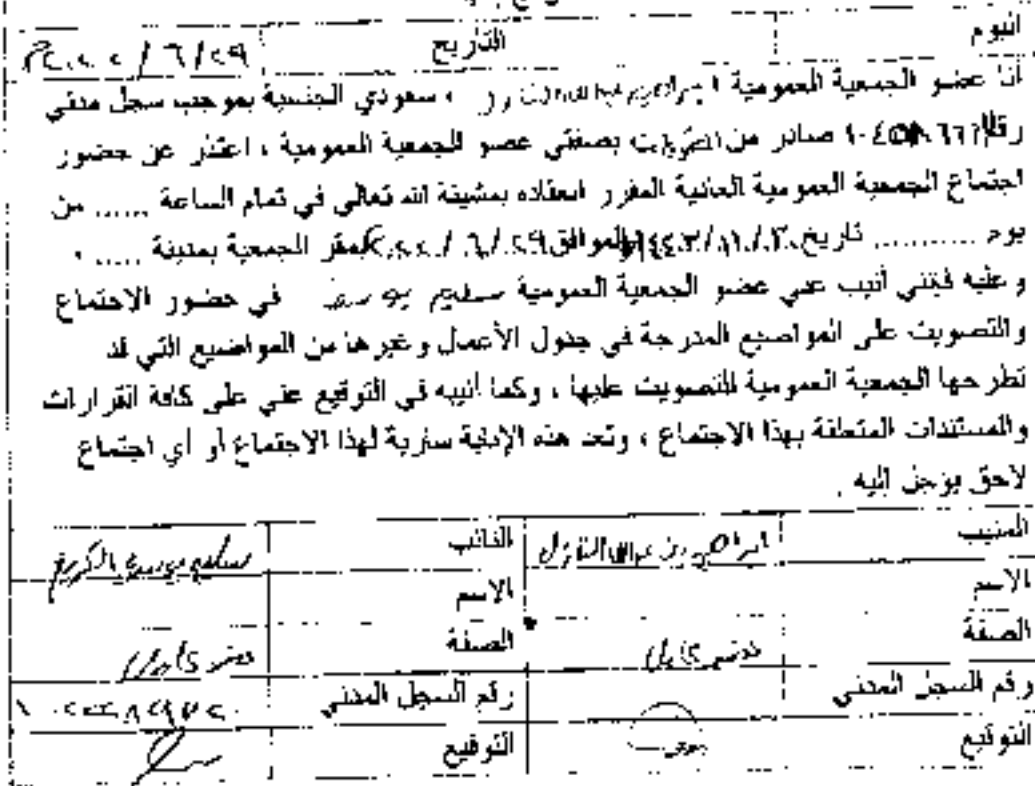 اليوم التاريخ ٢٠٢٢/٦/٢٩م
أنا عضو الجمعية العمومية ، سعودي الجنسية بموجب سجل مدني
صادر من بصفتي عضو الجمعية العمومية ، اعتذر عن حضور
اجتماع الجمعية العمومية العادية المقرر انعقاده بمشيئة الله تعالى في تمام الساعة ...... من
يوم ........... تاريخ ١٤٤٣/١١/٣٠ الموافق ٢٠٢٢/٦/٢٩ بمقر الجمعية بمدينة ..... .
وعليه فإنني أنيب عني عضو الجمعية العمومية سليم يوسف في حضور الاجتماع
والتصويت على المواضيع المدرجة في جدول الأعمال وغيرها من المواضيع التي قد
تطرحها الجمعية العمومية للتصويت عليها ، وكما أنيبه في التوقيع عني على كافة القرارات
والمستندات المتعلقة بهذا الاجتماع ، وتعد هذه الإنابة سارية لهذا الاجتماع أو أي اجتماع
لاحق يؤجل إليه .
المنيب النائب سليم يوسف الكريع
الاسم الاسم
الصفة عضو عامل الصفة عضو عامل
رقم السجل المدني رقم السجل المدني
التوقيع التوقيع